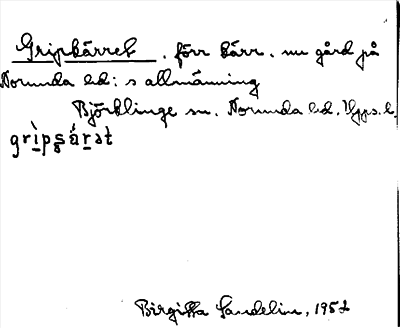 Gripkärret. förr kärr. nu gård på
Norunda hd:s allmänning
Björklinge sn. Norunda hd. Upps. l.
grìpsǻrat
Birgitta Sandelin, 1952